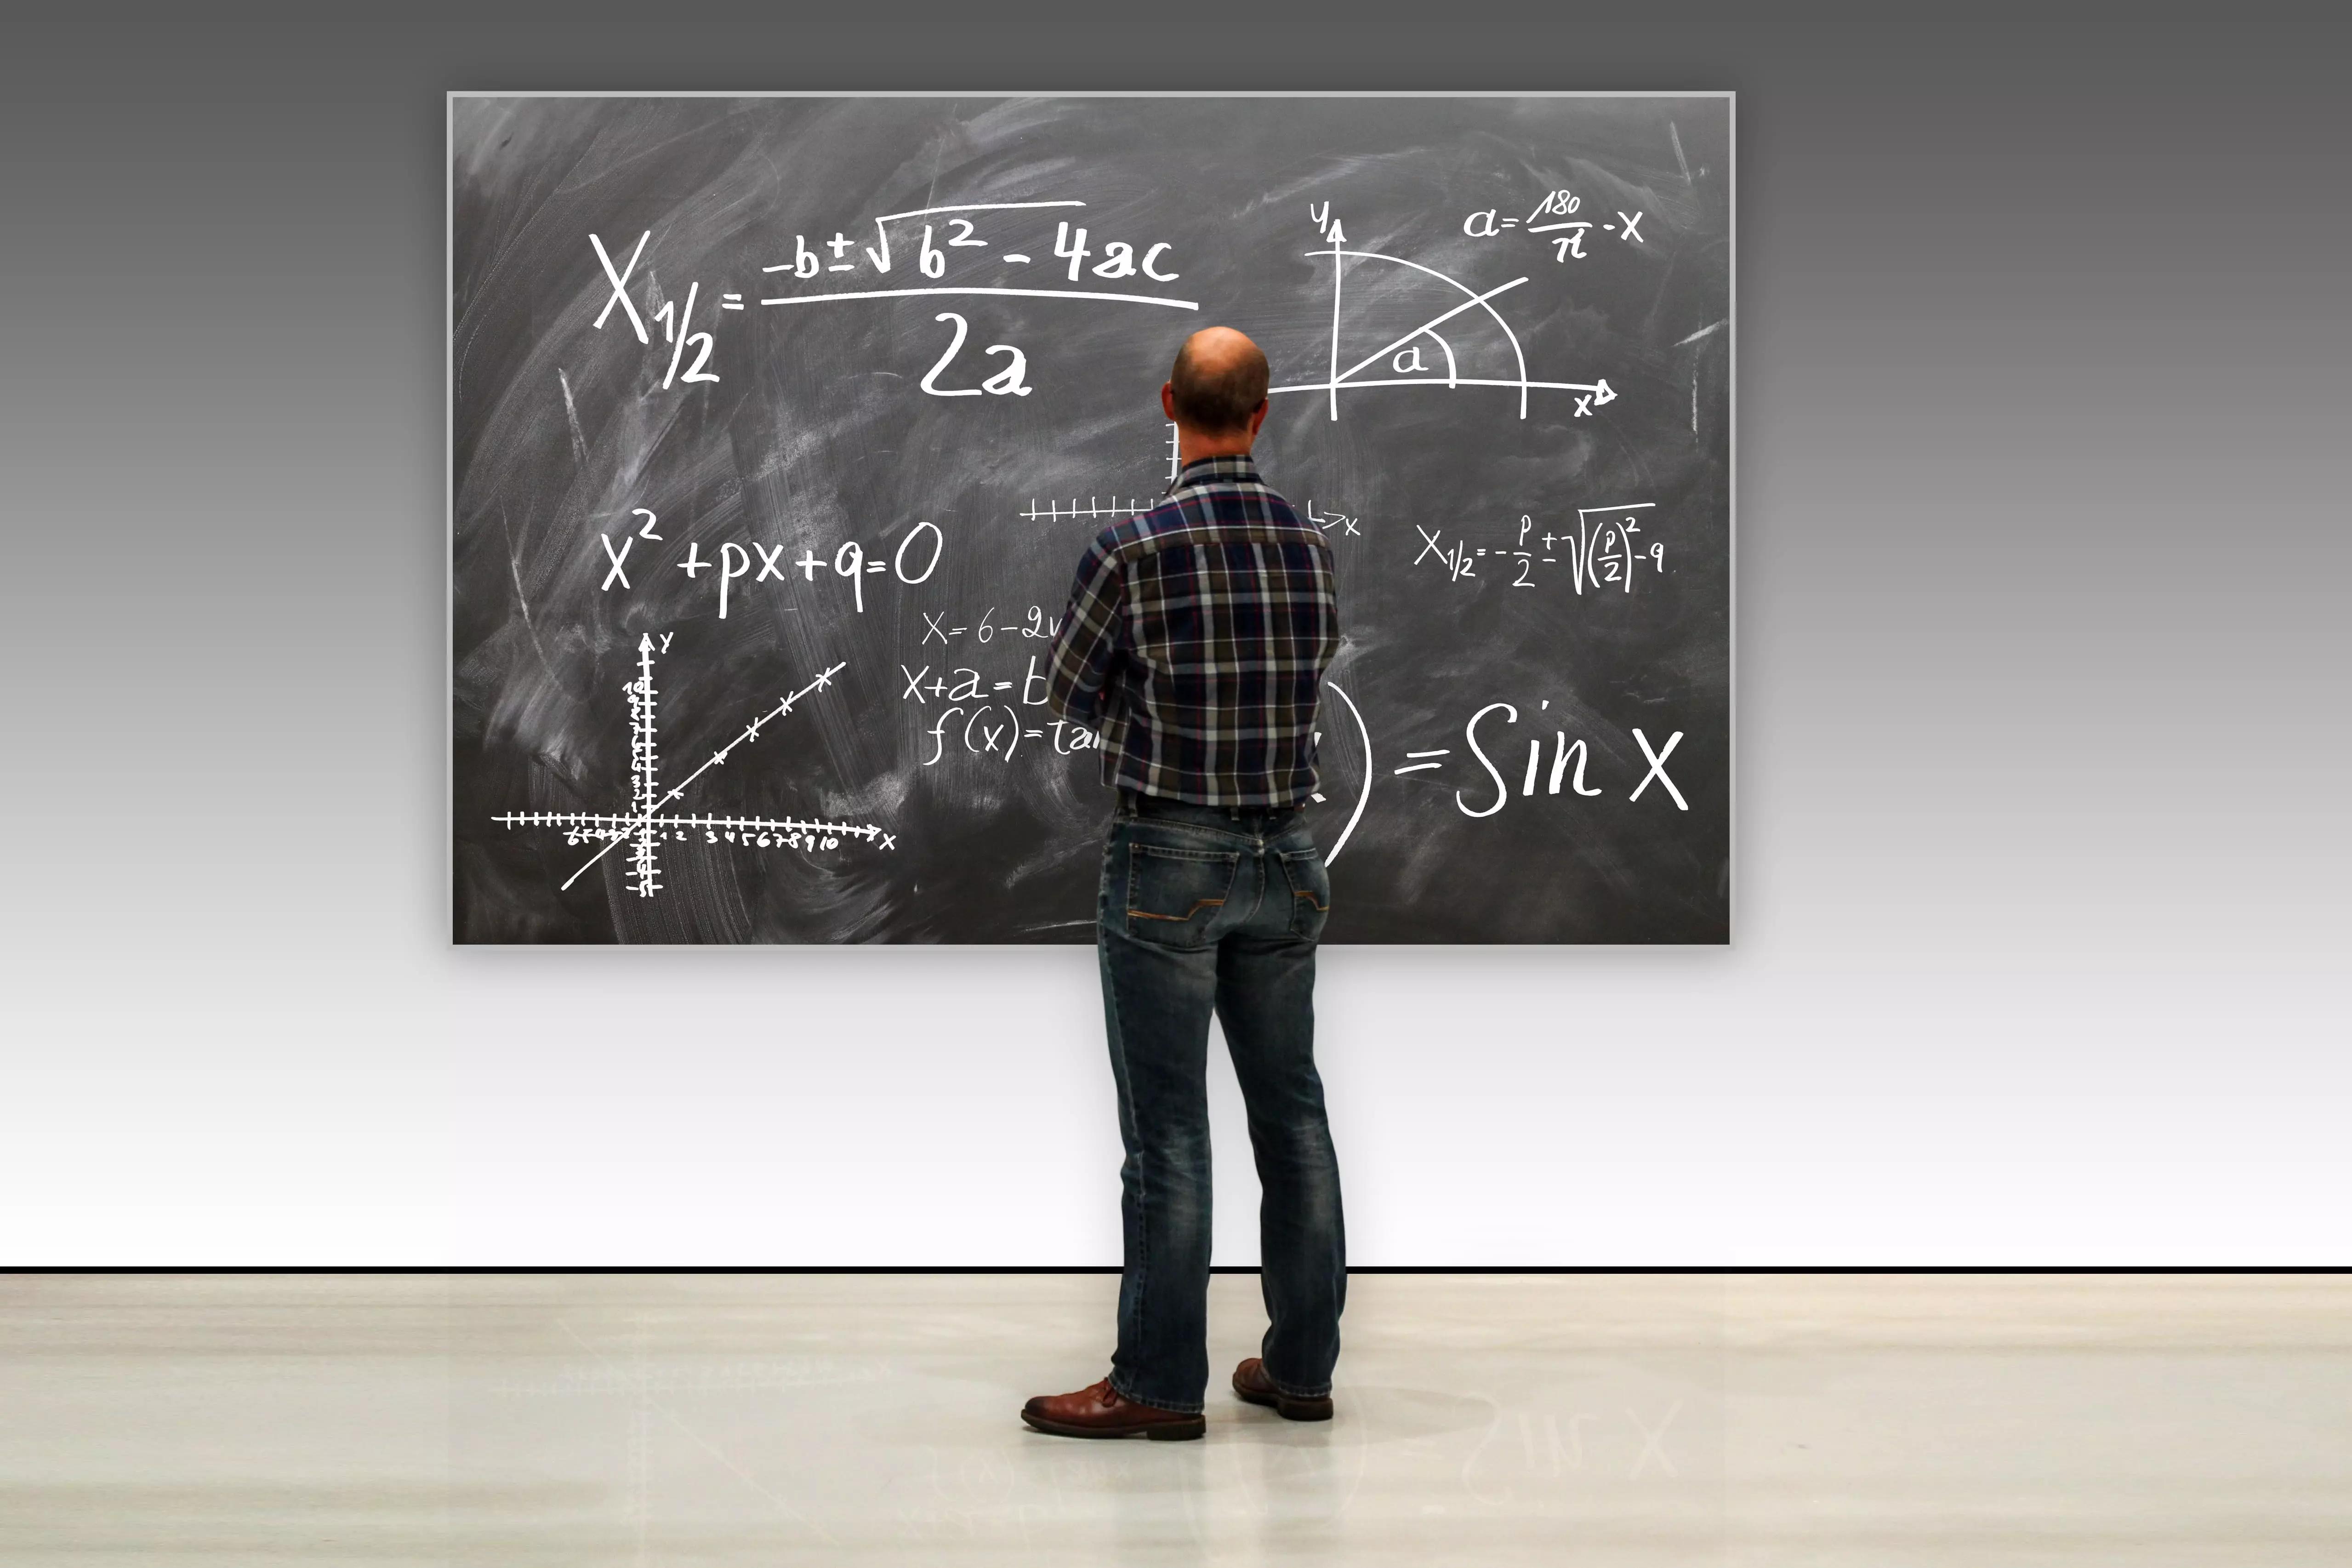 X1/2 = -b±√b² - 4ac / 2a
y
a = 180/π - x
a
x
x
x² + px + q = 0
X1/2 = - p/2 ± √(p/2)² - q
x = 6 - 2
x + a = b
f(x) = tan
) = Sin x
Y
10
1 2 3 4 5 6 7 8 9 10
x